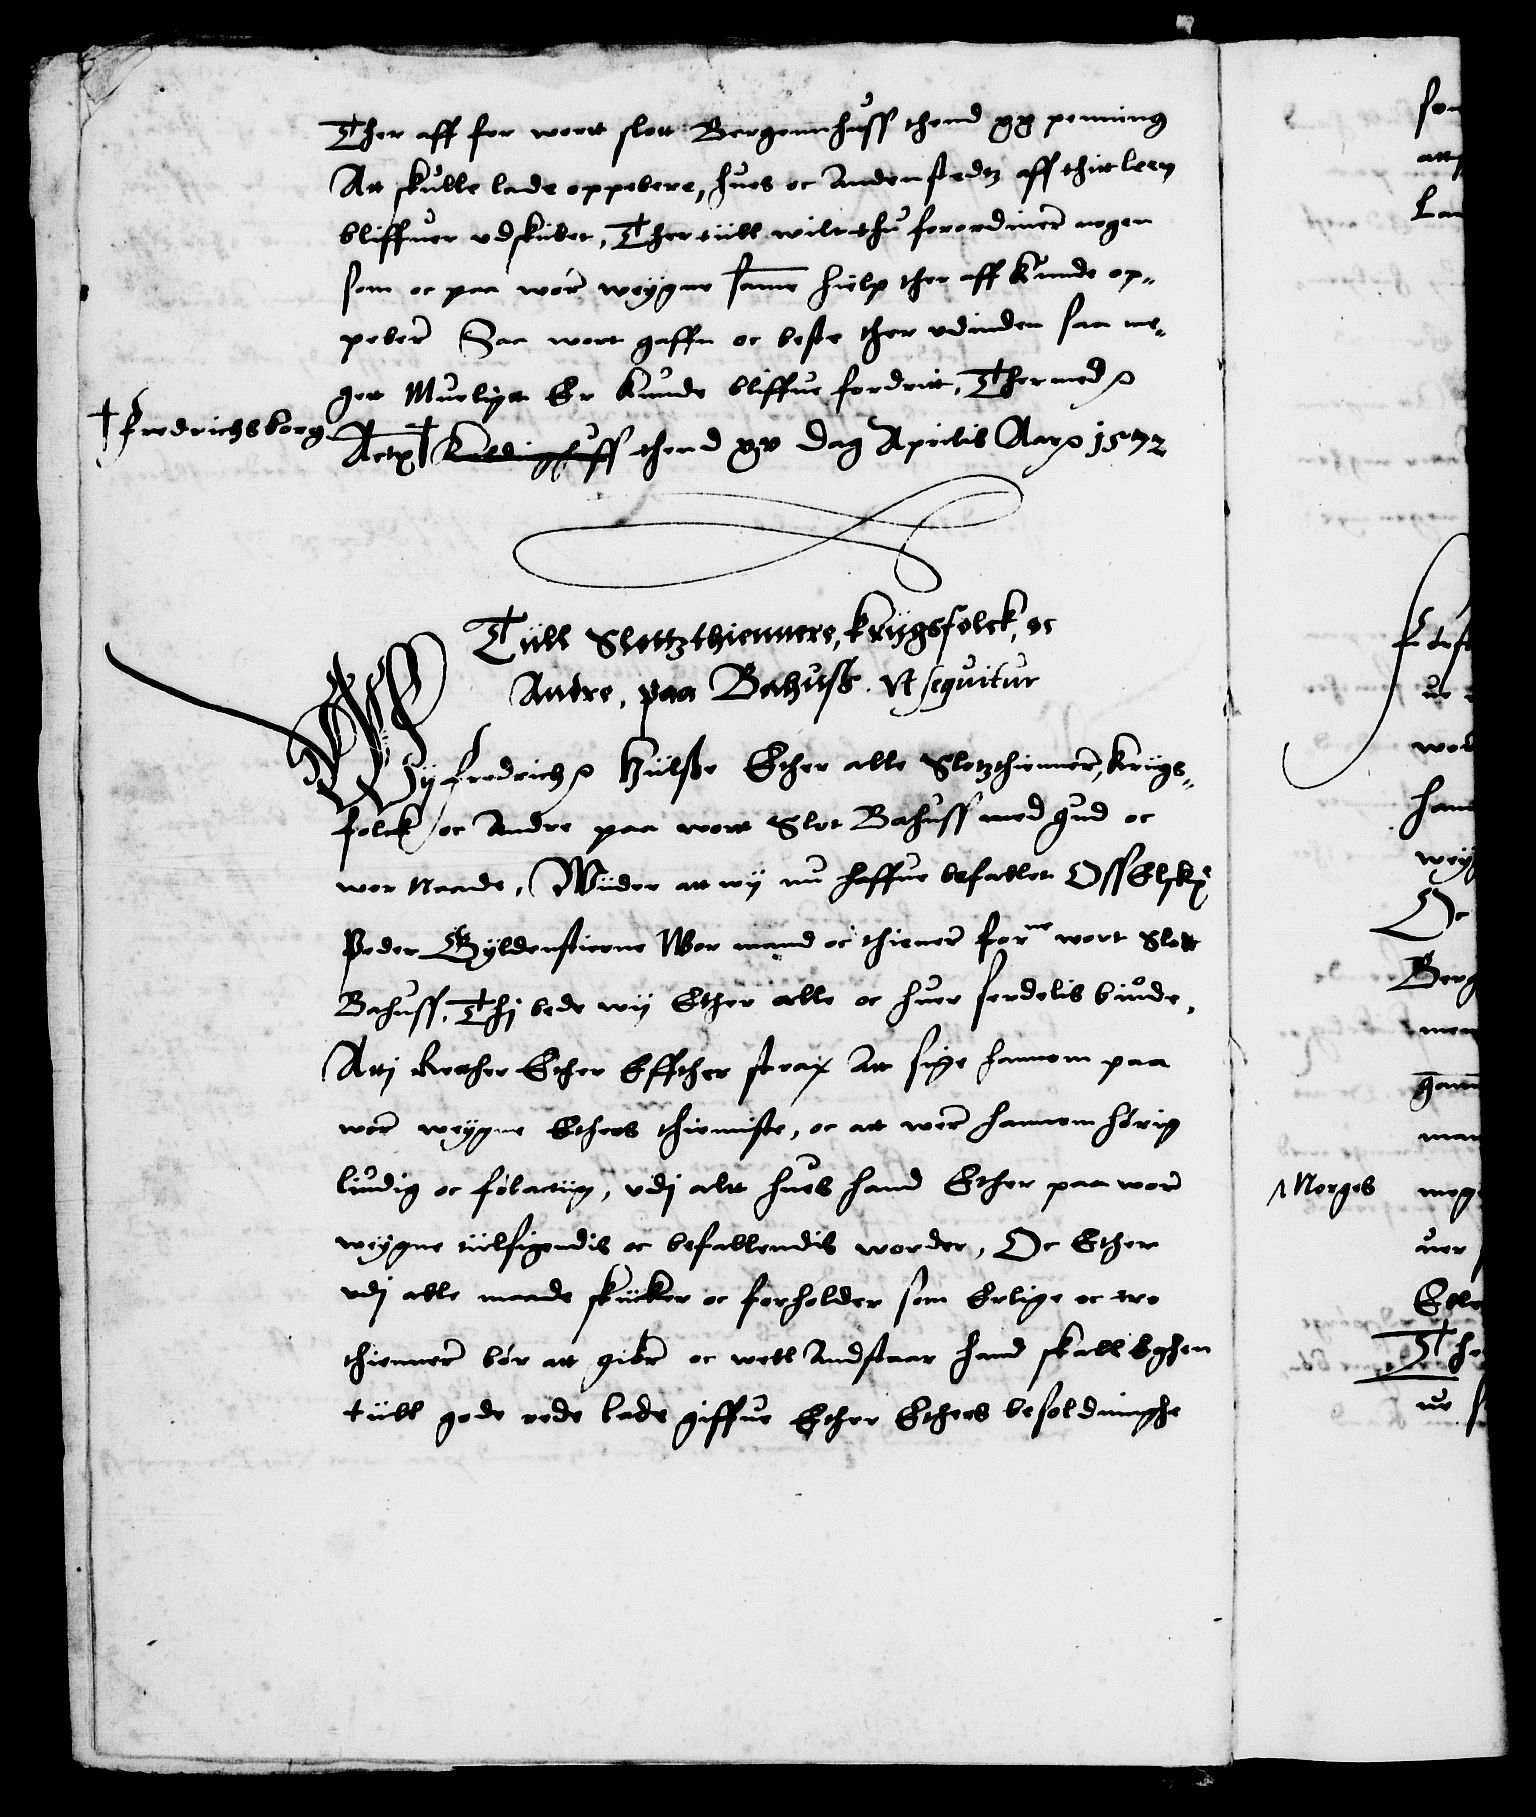 Ther aff for wortt slott Bergennhuss thend xx penning
Att skulle lade oppebere, hues oc Andenstedtz aff thitt leen
bliffuer vdskibet, Ther tiill wilt thu forordiner nogen
som oc paa wor weygne samme hielp ther aff kunde op-
peber Saa wort gaffn oc beste ther vdinden saa me-
gett Mueligtt Er kunde bliffue fordritt, Thermed
† fredrichsborg
Actx † Koldinghuss thend xv Dag Aprilis Aar 1572
Tiill Slottzthiennere, krijgsfolck, oc
Andre, paa Bahuss. Vt sequitur
Wij fredrich Hiilsse Ether alle Slotzthienner, krigs-
folck oc Andre paa wortt Slot Bahuss med gud oc
wor Naade, Wiider att wij nu haffue befallet Oss Elskx
Peder Gyldenstierne Wor mand oc thiener forne wort Slott
Bahuss. Thj bede wij Ether alle oc huer serdelis biude,
Attj Retther Ether Effther strax Att sige hannom paa
wor weygne Ethers thienniste, oc att wer hannom hörig
liudig oc fölactiig, vdj altt hues hand Ether paa wor
weygne tiilsigendis oc befallendis worder, Oc Ether
vdj alle maade skiicker oc forholder som Erlige oc tro
thienner bör att giör oc well Andstaar hand skall Eghen
tiill gode rede lade giffue Ether Ethers besoldninghe
Norges